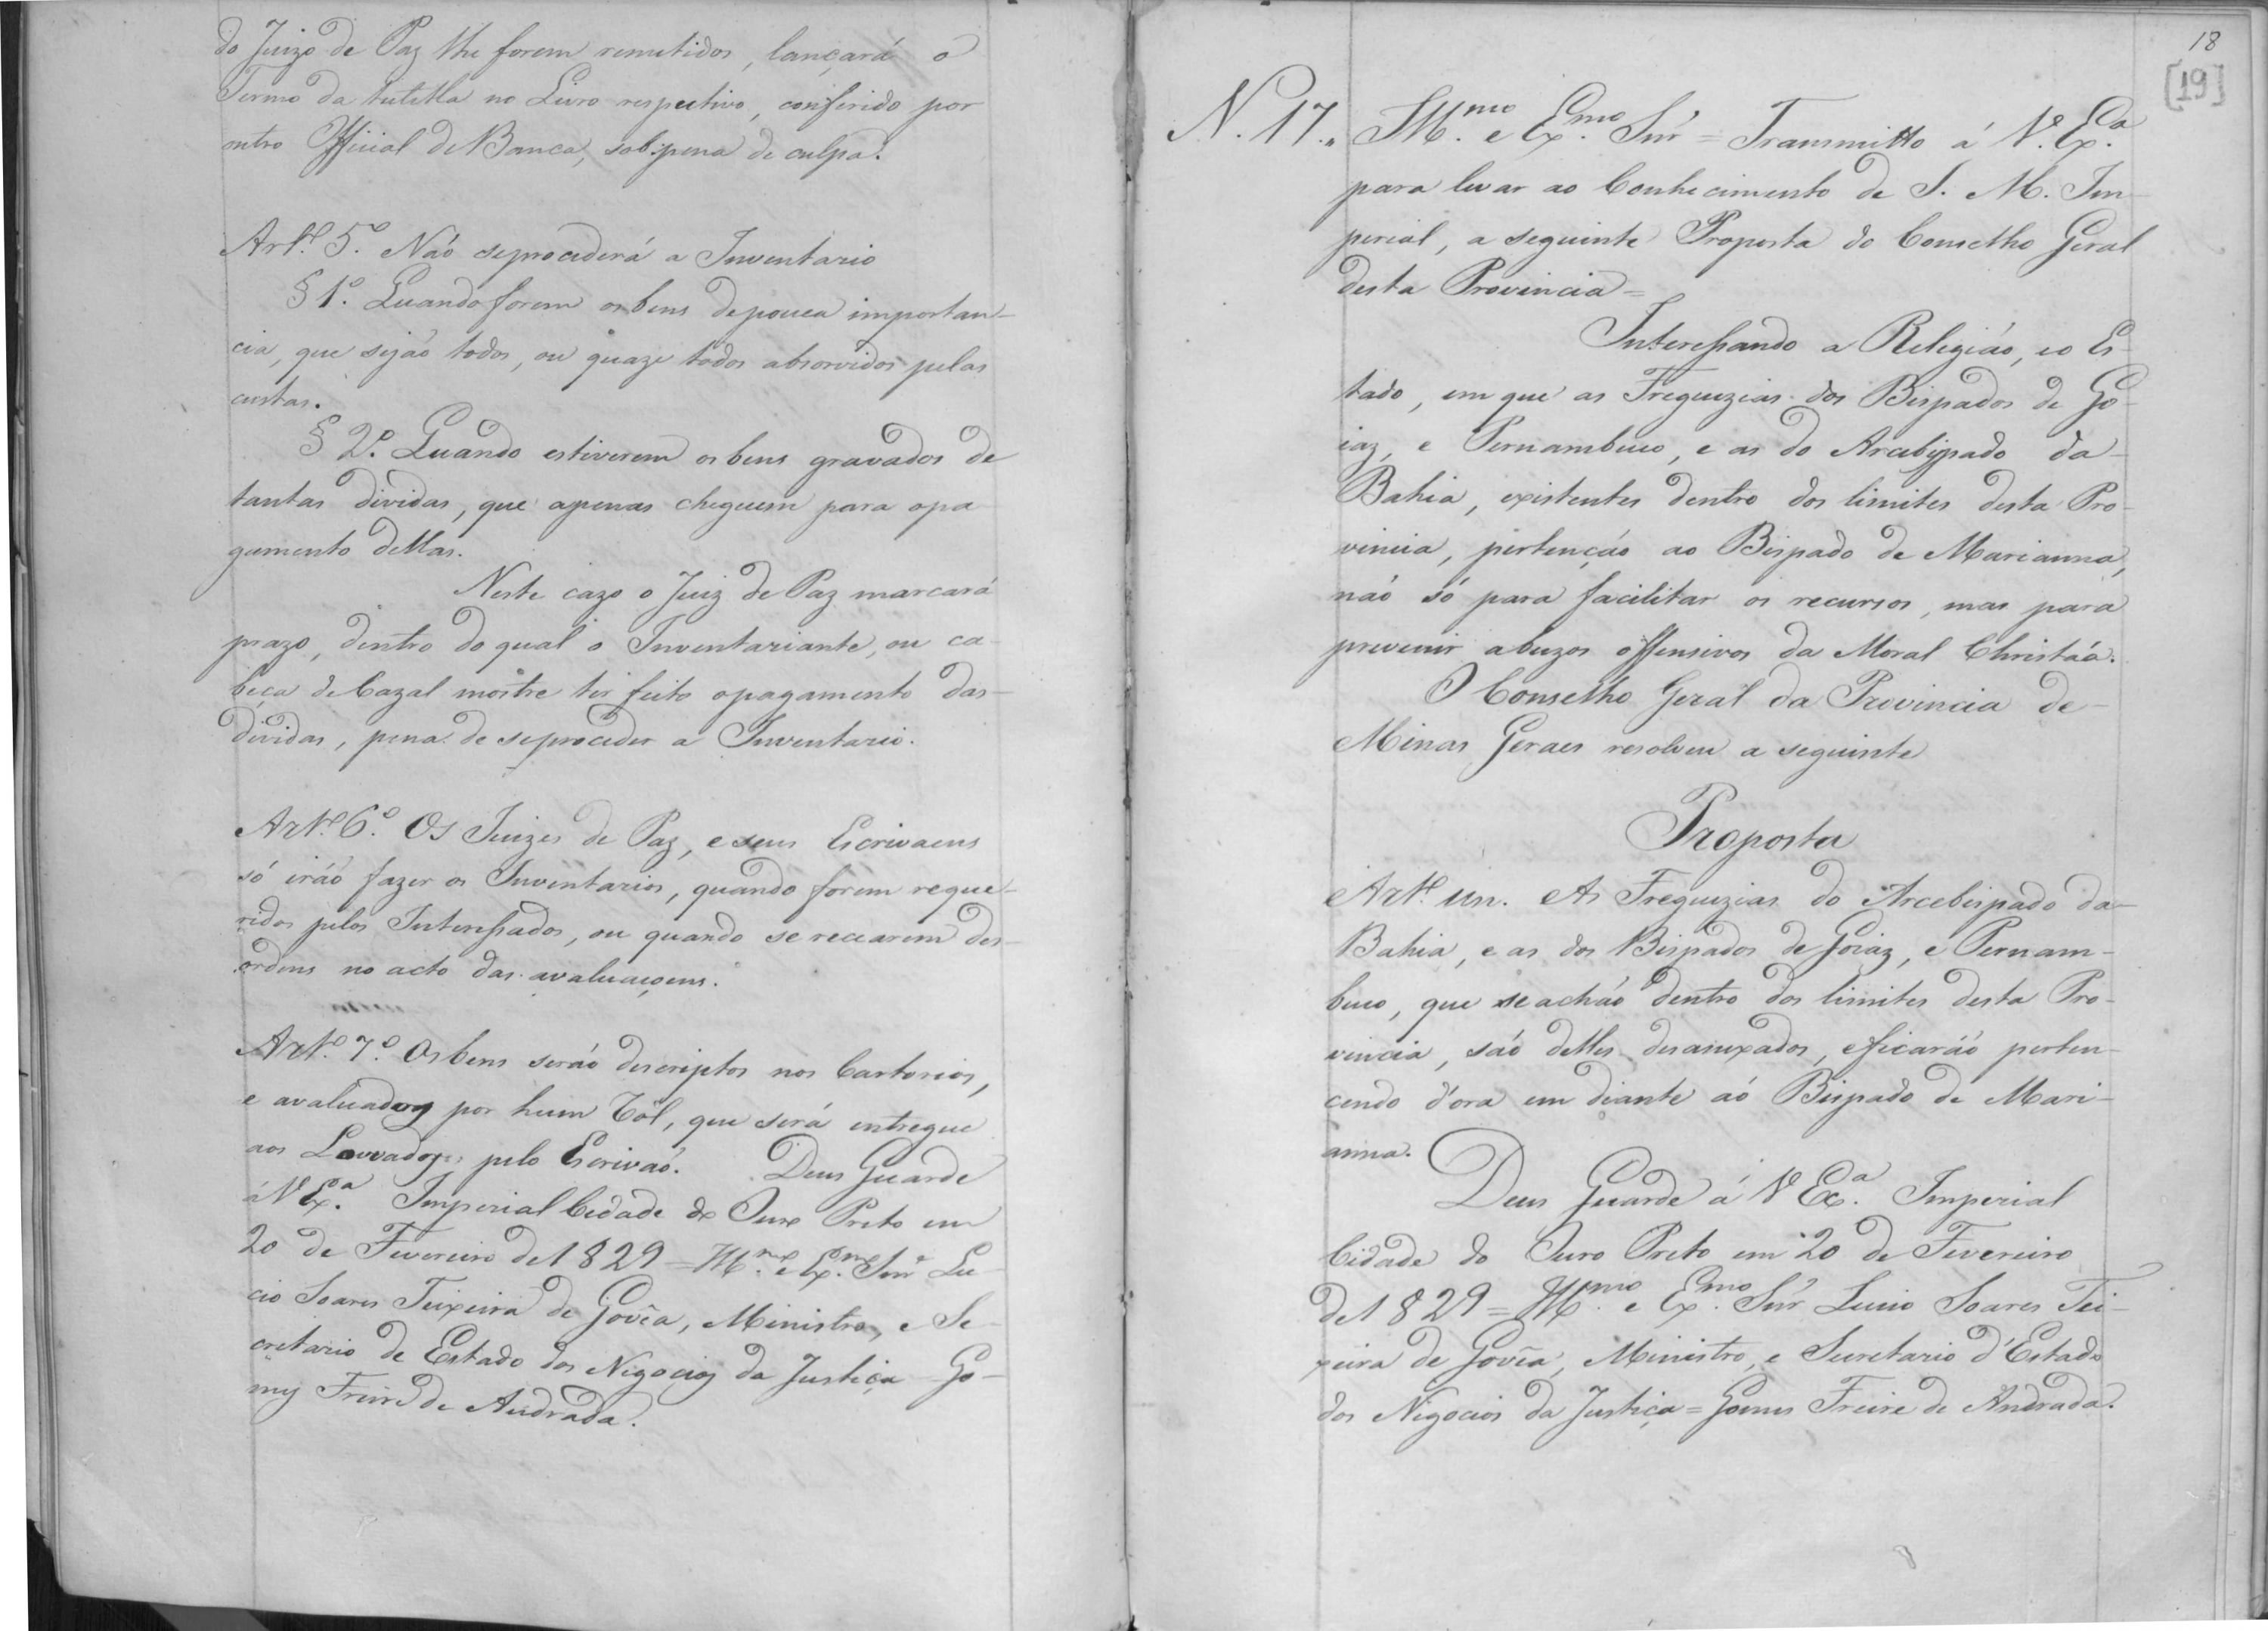 do Juizo de Paz lhe forem remetidos, lançará o
Termo da tutella no Livro respectivo, conferido por
outro Official de Banca, sob pena de culpa.
Artº. 5º. Náo se procederá a Inventario
§ 1º. Quando forem os bens de pouca importan-
cia, que sejáo todos, ou quaze todos absorvidos pelas
custas.
§ 2º. Quando estiverem os bens gravados de
tantas dividas, que apenas cheguem para o pa
gamento dellas.
Neste cazo o Juiz de Paz marcará
prazo, dentro do qual o Inventariante, ou ca-
beça de Cazal mostre ter feito o pagamento das
dividas, pena de se proceder a Inventario.
Artº. 6º. Os Juizes de Paz, e seus Escrivaens
só iráo fazer os Inventarios, quando forem reque-
ridos pelos Interessados, ou quando se recearem des-
ordens no acto das avaluaçoens.
Artº. 7º. Os bens seráo descriptos nos Cartorios,
e avaluados por hum Rol, que será entregue
aos Louvados pelo Escriváo. Deus Guarde
á V Exª. Imperial Cidade do Ouro Preto em
20 de Fevereiro de 1829 = Illmo. e Exmo. Snr Lu
cio Soares Teixeira de Govêa, Ministro, e Se-
cretario de Estado dos Negocios da Justiça Go-
mes Freire de Andrada.
18
[19]
N. 17. Illmo. e Exmo. Snr = Transmitto á V. Exª.
para levar ao Conhecimento de S. M. Im-
perial, a seguinte Proposta do Conselho Geral
desta Provincia =
Interessando a Religiáo, e o Es-
tado, em que as Freguezias dos Bispados de Go-
iaz, e Pernambuco, e as do Arcebispado da
Bahia, existentes dentro dos limites desta Pro-
vincia, pertençáo ao Bispado de Marianna,
náo só para facilitar os recursos, mas para
prevenir abuzos offensivos da Moral Christáa.
O Conselho Geral da Provincia de
Minas Geraes resolveu a seguinte
Proposta
Artº. un. As Freguezias do Arcebispado da
Bahia, e as dos Bispados de Goiaz, e Pernam-
buco, que se acháo dentro dos limites desta Pro-
vincia, sáo delles desanexados, e ficaráo perten-
cendo d'ora em diante aó Bispado de Mari-
anna.
Deus Guarde á V Exª. Imperial
Cidade do Ouro Preto em 20 de Fevereiro
de 1829 = Illmo. e Exmo. Snr Lucio Soares Tei-
xeira de Govêa, Ministro, e Secretario d'Estado
dos Negocios da Justiça = Gomes Freire de Andrada.